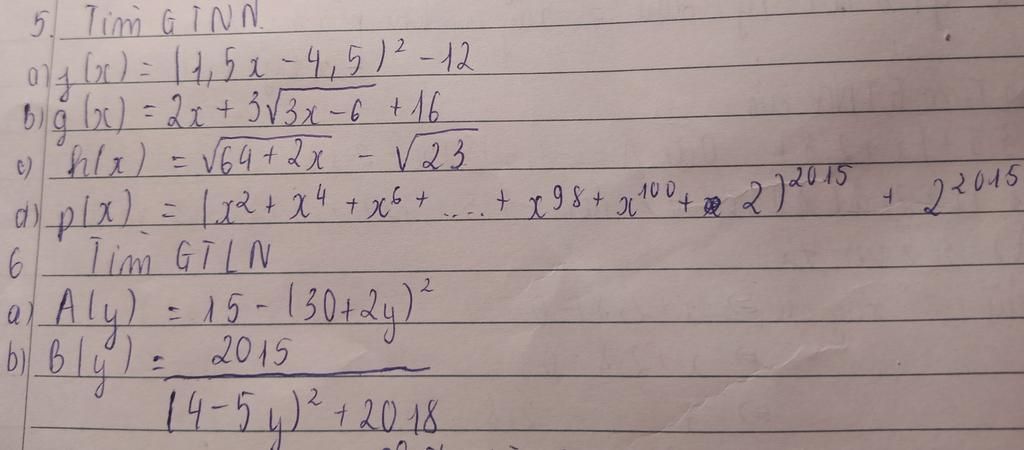 5. Tìm GTNN.
a) f(x) = (1,5x - 4,5)² - 12
b) g(x) = 2x + 3√(3x - 6) + 16
c) h(x) = √(64 + 2x) - √23
d) p(x) = (x² + x⁴ + x⁶ + .... + x⁹⁸ + x¹⁰⁰ + 2)²⁰¹⁵ + 2²⁰¹⁵
6 Tìm GTLN
a) A(y) = 15 - (30 + 2y)²
b) B(y) = 2015
(4 - 5y)² + 2018